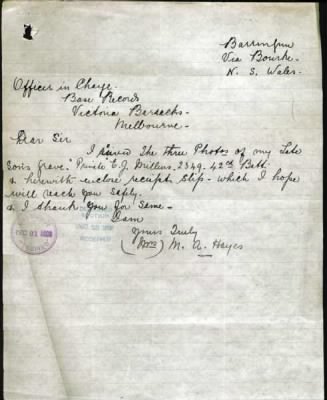 Barringun
Via Bourke.
N. S. Wales.
Officer in Charge.
Base Records
Victoria Barracks
Melbourne.
Dear Sir
I received the three Photos of my Late
Son's grave. Private E. J. Mullins. 2349. 42nd Batt.
& herewith enclose receipt slip - which I hope
will reach you safely.
& I thank you for same -
I am
Yours Truly
(Mrs) M. A. Hayes
RECEIVED